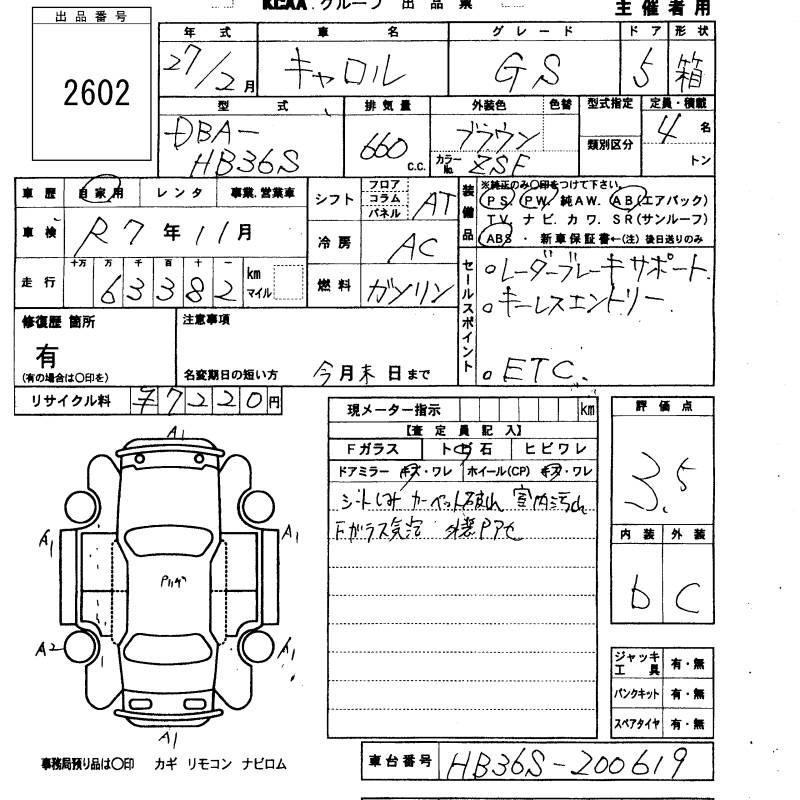 KCAA グループ 出品票
主催者用
出品番号
2602
年式 車名 グレード ドア 形状
27/2月 キャロル GS 5 箱
型式 排気量 外装色 色替 型式指定 定員・積載
DBA-HB36S 660 C.C. ブラウン 類別区分 4名
カラーNo. ZSF トン
車歴 自家用 レンタ 事業.営業車
車検 R7年11月
走行 十万 万 千 百 十 一
63382 km マイル
シフト フロア コラム パネル AT
冷房 AC
燃料 ガソリン
装備品 ※純正のみ〇印をつけて下さい。
PS. PW. 純AW. AB(エアバック)
TV. ナビ. カワ. SR(サンルーフ)
ABS ・ 新車保証書←(注)後日送りのみ
セールスポイント
○レーダーブレーキサポート
○キーレスエントリー
○ETC.
修復歴 箇所
有
(有の場合は〇印を)
注意事項
名変期日の短い方 今月末日まで
リサイクル料 ¥7220円
現メーター指示 km
【査定員記入】
Fガラス トビ石 ヒビワレ
ドアミラー キズ・ワレ ホイール(CP) キズ・ワレ
シートしみ カーペット破れ 室内汚れ
Fガラス気泡 外装Pアセ
評価点
3.5
内装 外装
b C
ジャッキ工具 有・無
パンクキット 有・無
スペアタイヤ 有・無
A1
A1 A1
A2 A1
A1
事務局預り品は〇印 カギ リモコン ナビロム
車台番号 HB36S-200619